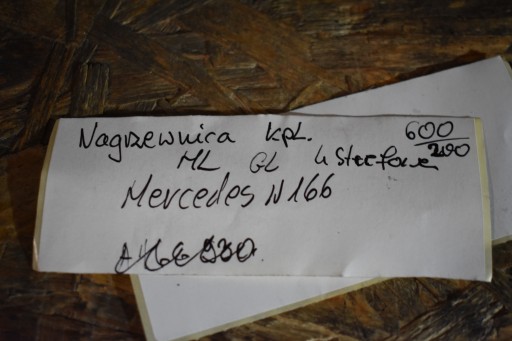 Nagrzewnica kpl. 600
ML GL 4 Strefowe 200
Mercedes W166
A166 930